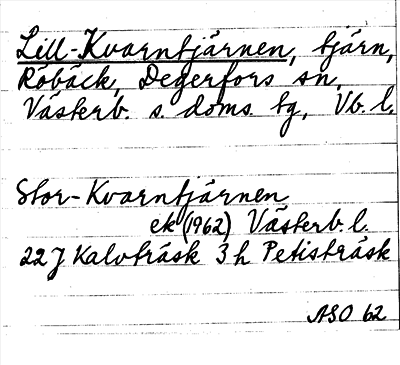 Lill-Kvarntjärnen, tjärn,
Robäck, Degerfors sn,
Västerb. s. doms. tg, Vb. l.
Stor-Kvarntjärnen
ek (1962) Västerb. l.
22 J Kalvträsk 3 h Petisträsk
ASO 62